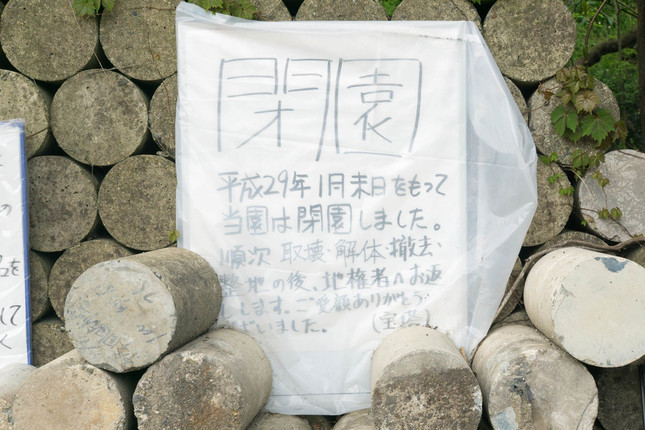 閉園
平成29年1月末日をもって
当園は閉園しました。
順次 取壊・解体・撤去・
整地の後、地権者へお返
しします。ご愛顧ありがとう
ございました。(宝塔)
の
を
して
く